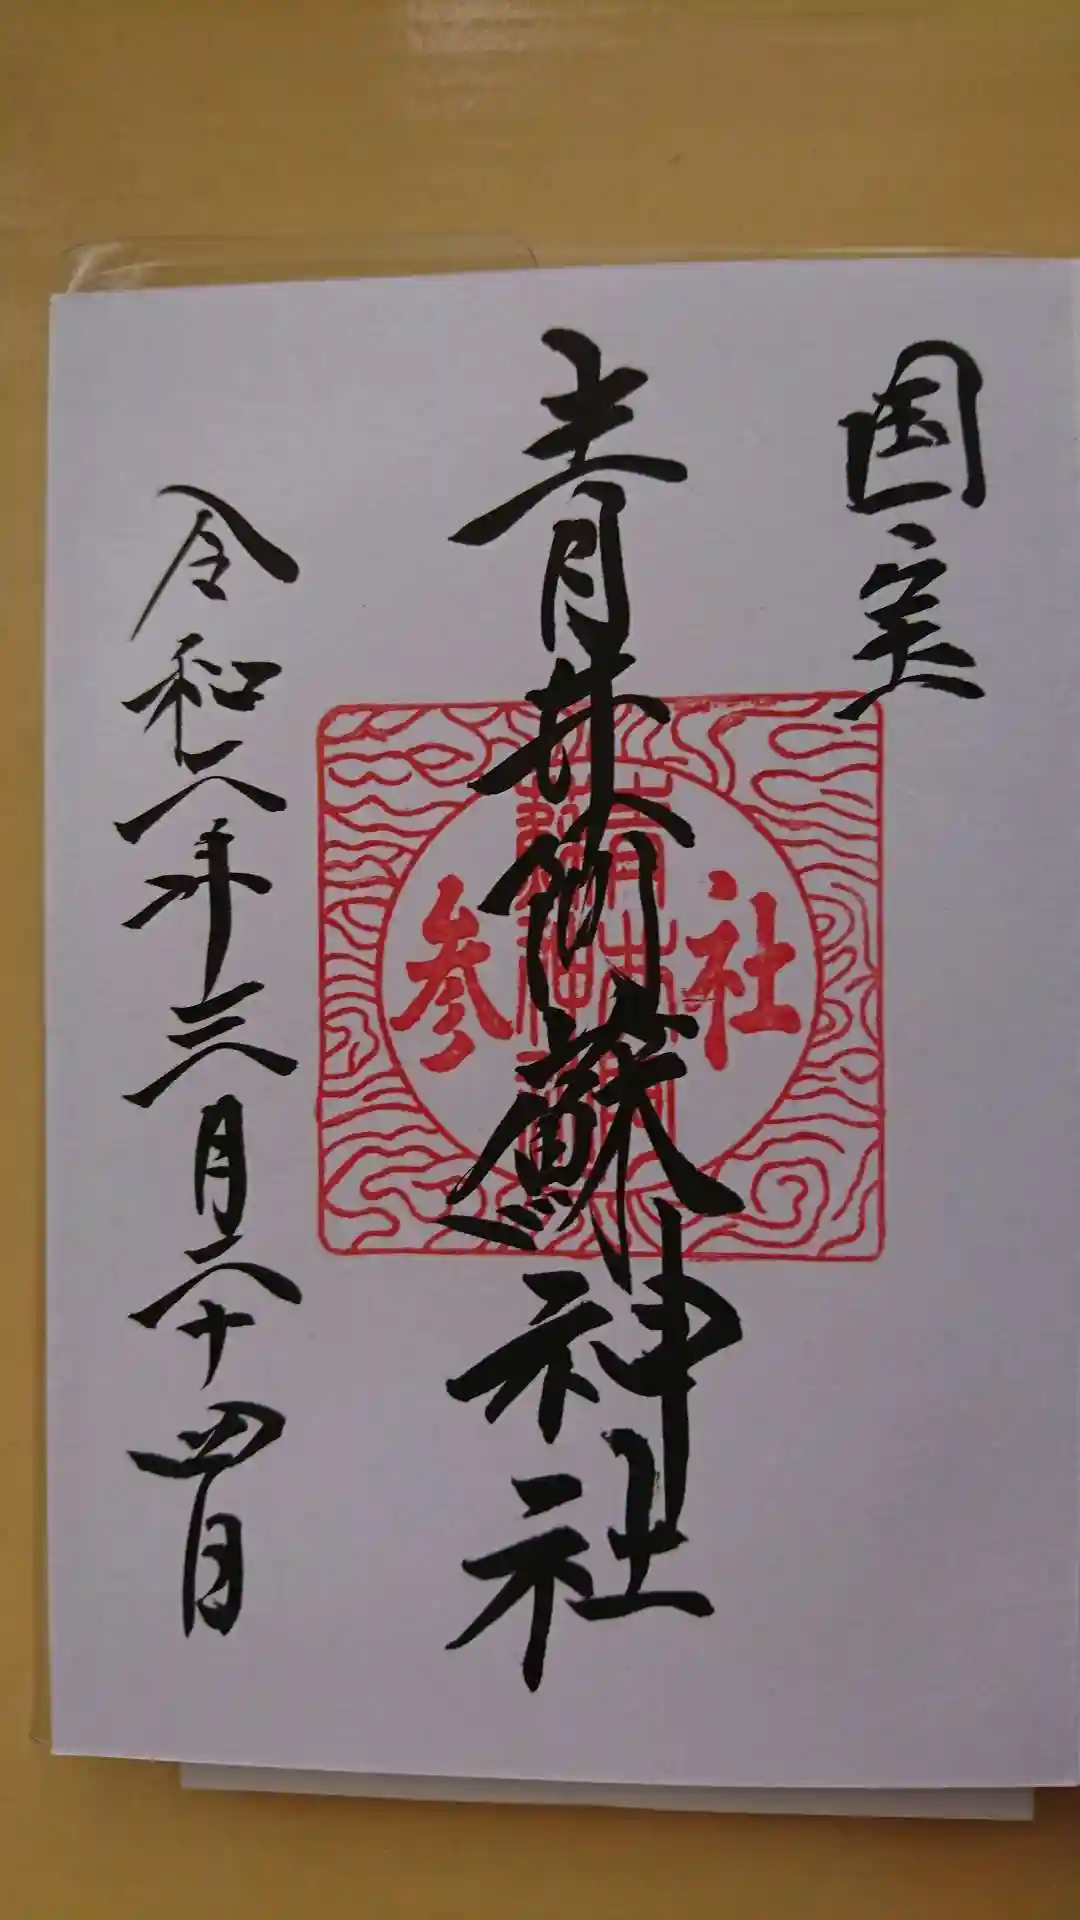 国宝
青井阿蘇神社
社参
青井阿
蘇神社
令和八年三月二十四日